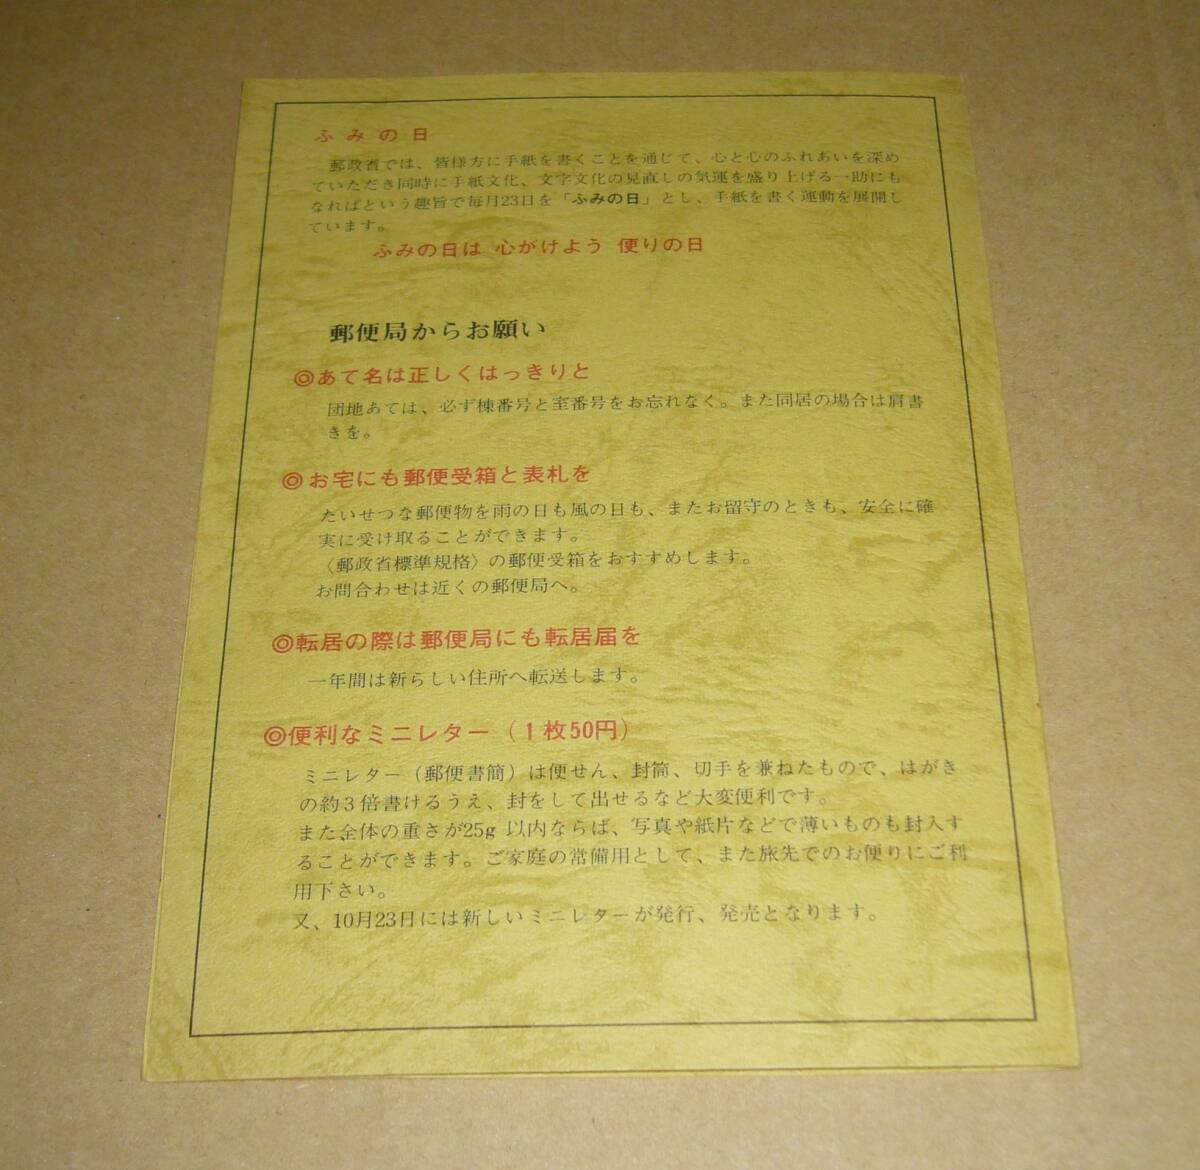 ふみの日
郵政省では、皆様方に手紙を書くことを通じて、心と心のふれあいを深め
ていただき同時に手紙文化、文字文化の見直しの気運を盛り上げる一助にも
なればという趣旨で毎月23日を「ふみの日」とし、手紙を書く運動を展開し
ています。
ふみの日は 心がけよう 便りの日
郵便局からお願い
◎あて名は正しくはっきりと
団地あては、必ず棟番号と室番号をお忘れなく。また同居の場合は肩書
きを。
◎お宅にも郵便受箱と表札を
たいせつな郵便物を雨の日も風の日も、またお留守のときも、安全に確
実に受け取ることができます。
〈郵政省標準規格〉の郵便受箱をおすすめします。
お問合わせは近くの郵便局へ。
◎転居の際は郵便局にも転居届を
一年間は新らしい住所へ転送します。
◎便利なミニレター(1枚50円)
ミニレター(郵便書簡)は便せん、封筒、切手を兼ねたもので、はがき
の約3倍書けるうえ、封をして出せるなど大変便利です。
また全体の重さが25g 以内ならば、写真や紙片などで薄いものも封入す
ることができます。ご家庭の常備用として、また旅先でのお便りにご利
用下さい。
又、10月23日には新しいミニレターが発行、発売となります。